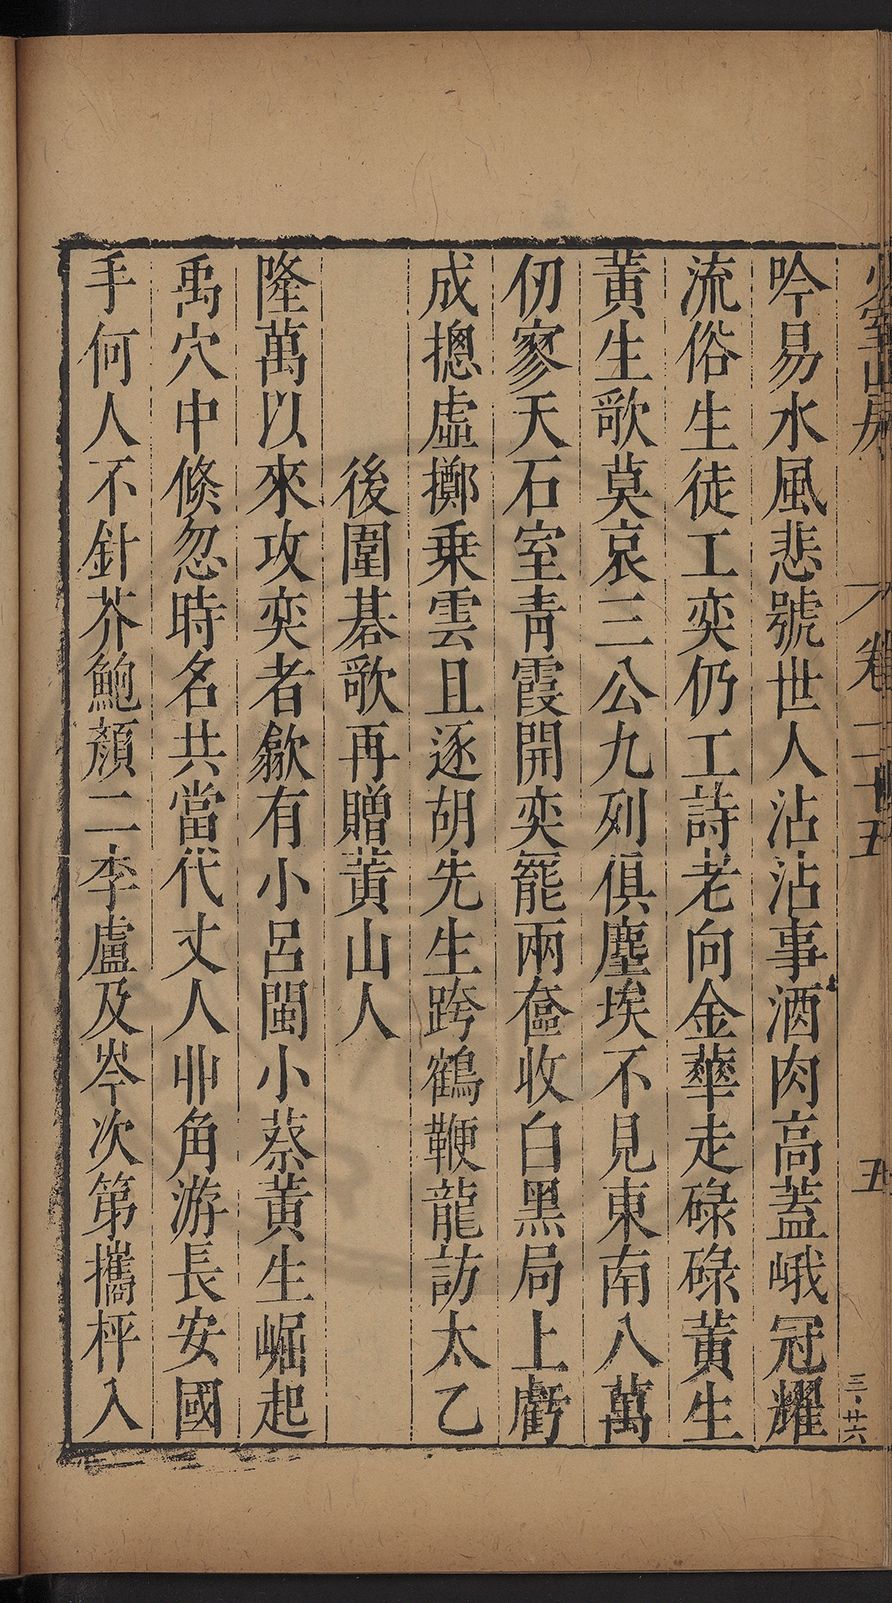 少室山房 卷二十五 五
三·廿六
吟易水風悲號世人沾沾事酒肉高蓋峨冠耀
流俗生徒工奕仍工詩老向金華走碌碌黃生
黃生歌莫哀三公九列俱塵埃不見東南八萬
仞寥天石室靑霞開奕罷兩奩收白黑局上虧
成摠虛擲乗雲且逐胡先生跨鶴鞭龍訪太乙
後圍碁歌再贈黃山人
隆萬以來攻奕者歙有小呂閩小蔡黃生崛起
禹穴中倐忽時名共當代丈人丱角游長安國
手何人不針芥鮑顏二李盧及岑次第攜枰入